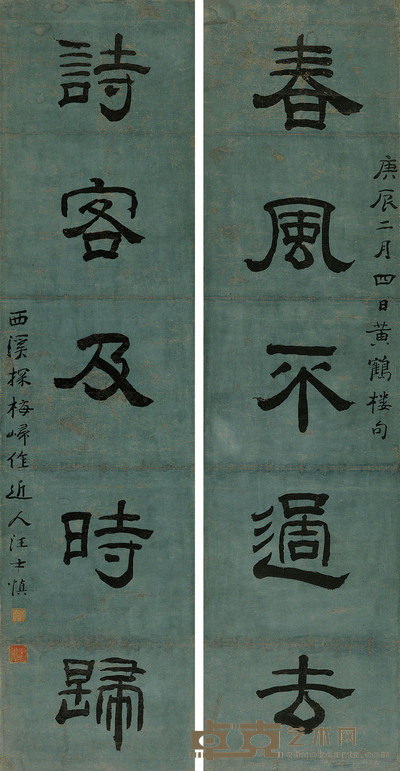 庚辰二月四日黄鶴楼句
春風不過去
詩客及時歸
西溪探梅歸作近人汪士慎
卓克艺术网